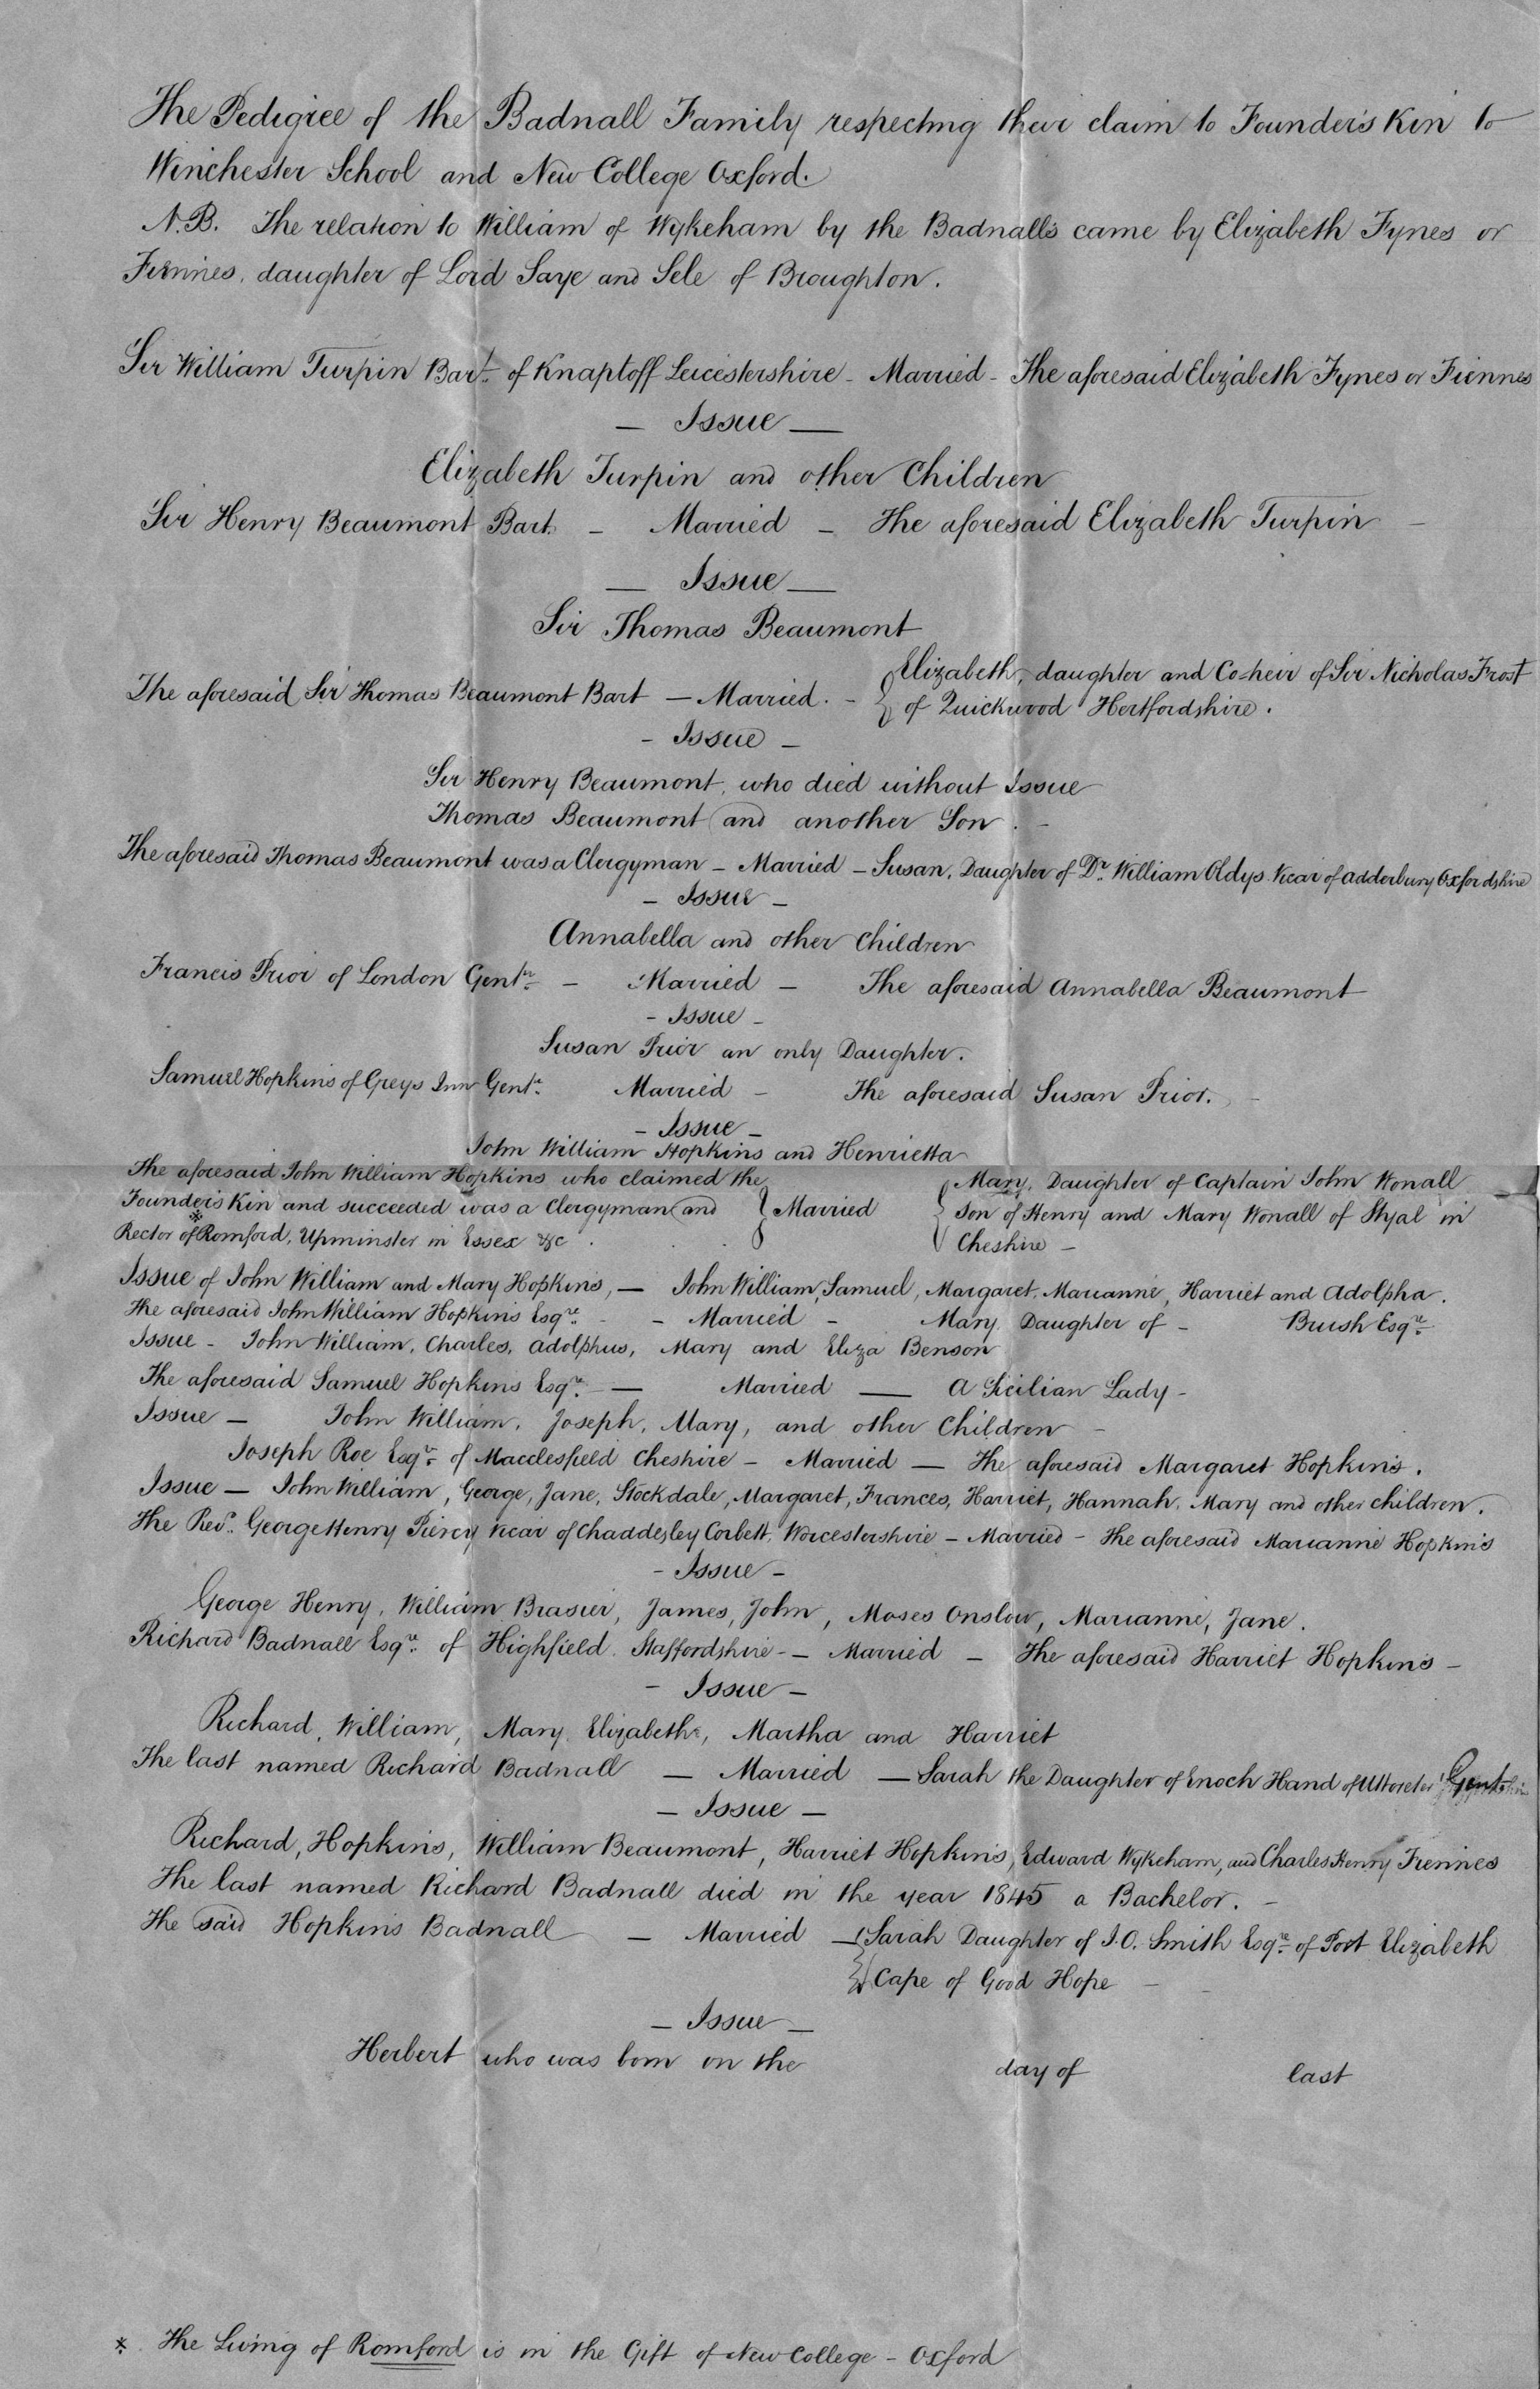 The Pedigree of the Badnall Family respecting their claim to Founder's Kin to
Winchester School and New College Oxford.
N.B. The relation to William of Wykeham by the Badnall's came by Elizabeth Fynes or
Fiennes, daughter of Lord Saye and Sele of Broughton.
Sir William Turpin Bart. of Knaptoff Leicestershire - Married - The aforesaid Elizabeth Fynes or Fiennes
— Issue —
Elizabeth Turpin and other Children
Sir Henry Beaumont Bart. - Married - The aforesaid Elizabeth Turpin -
— Issue —
Sir Thomas Beaumont
The aforesaid Sir Thomas Beaumont Bart — Married. - { Elizabeth, daughter and Co=heir of Sir Nicholas Frost
of Quickwood Hertfordshire.
- Issue -
Sir Henry Beaumont, who died without Issue
Thomas Beaumont and another Son. -
The aforesaid Thomas Beaumont was a Clergyman - Married - Susan, Daughter of Dr. William Oldys Vicar of Adderbury Oxfordshire
- Issue -
Annabella and other Children
Francis Prior of London Gentn. - Married - The aforesaid Annabella Beaumont
- Issue -
Susan Prior an only Daughter.
Samuel Hopkins of Greys Inn Gentn. Married - The aforesaid Susan Prior. -
- Issue -
John William Hopkins and Henrietta
The aforesaid John William Hopkins who claimed the
Founder's Kin and succeeded was a Clergyman and
Rector of * Romford, Upminster in Essex &c.
} Married {
Mary, Daughter of Captain John Wonall
Son of Henry and Mary Wonall of Styal in
Cheshire -
Issue of John William and Mary Hopkins, — John William, Samuel, Margaret, Marianne, Harriet and Adolpha.
The aforesaid John William Hopkins Esqre. - - Married - Mary, Daughter of - Brush Esqre.
Issue - John William, Charles, Adolphus, Mary and Eliza Benson
The aforesaid Samuel Hopkins Esqre. — Married — A Sicilian Lady -
Issue — John William, Joseph, Mary, and other Children -
Joseph Roe Esqr. of Macclesfield Cheshire - Married — The aforesaid Margaret Hopkins.
Issue — John William, George, Jane, Stockdale, Margaret, Frances, Harriet, Hannah, Mary and other children.
The Revd. George Henry Piercy Vicar of Chaddesley Corbett, Worcestershire - Married - The aforesaid Marianne Hopkins
- Issue -
George Henry, William Brasier, James, John, Moses Onslow, Marianne, Jane.
Richard Badnall Esqre. of Highfield Staffordshire - - Married - The aforesaid Harriet Hopkins -
- Issue -
Richard, William, Mary, Elizabeth, Martha and Harriet
The last named Richard Badnall — Married — Sarah the Daughter of Enoch Hand of Uttoxeter Gent.
— Issue —
Richard, Hopkins, William Beaumont, Harriet Hopkins, Edward Wykeham, and Charles Henry Fiennes
The last named Richard Badnall died in the year 1845 a Bachelor. -
The said Hopkins Badnall — Married — { Sarah Daughter of J.O. Smith Esqre. of Port Elizabeth
Cape of Good Hope -
— Issue —
Herbert who was born on the day of last
* The Living of Romford is in the Gift of New College - Oxford